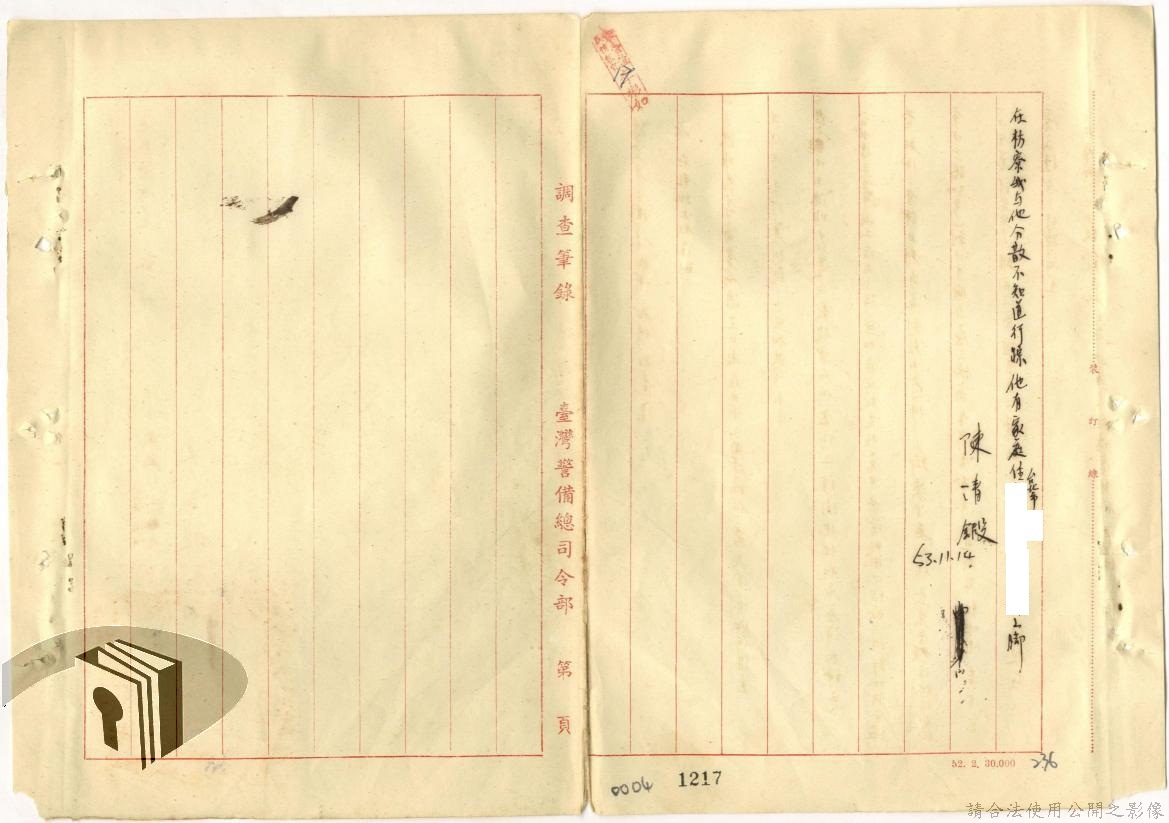 在坊寮我与他分散不知道行踪他有家庭住台北市
上脚
陳清
53.11.14
裝訂線
調查筆錄 臺灣警備總司令部 第 頁
52. 2. 30.000
236
0004
1217
請合法使用公開之影像